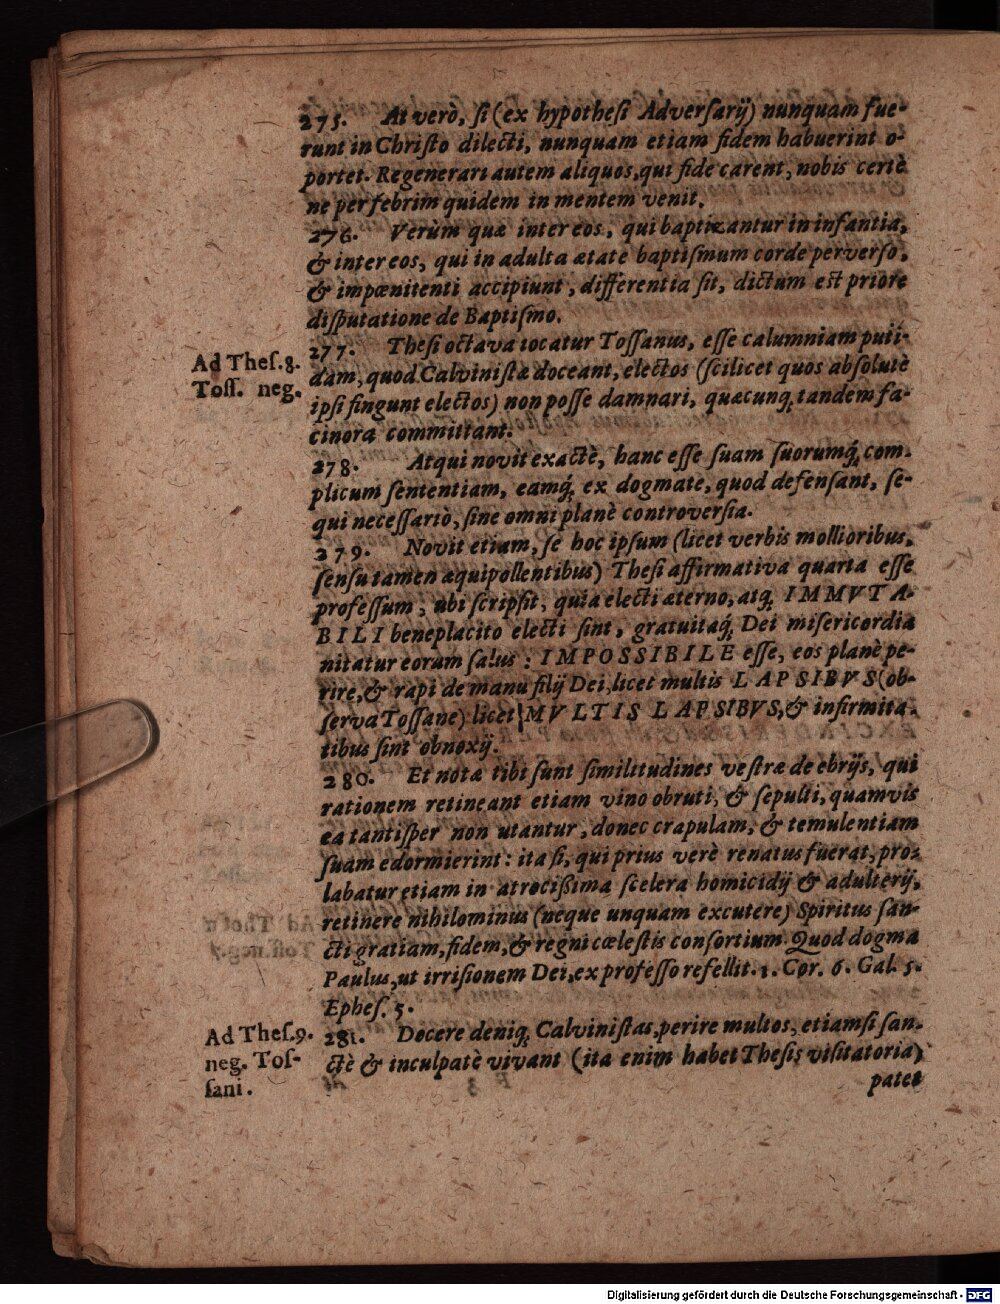 275. At verò, ſi (ex hypotheſi Adverſarij) nunquam fue-
runt in Chriſto dilecti, nunquam etiam fidem habuerint o-
portet. Regenerari autem aliquos, qui fide carent, nobis certè
ne per febrim quidem in mentem venit.
276. Verùm quæ inter eos, qui baptizantur in infantia,
& inter eos, qui in adulta ætate baptiſmum corde perverſo,
& impœnitenti accipiunt, differentia ſit, dictum eſt priore
diſputatione de Baptiſmo.
Ad Theſ. 8.
Toſſ. neg.
277. Theſi octava iocatur Toſſanus, eſſe calumniam puti-
dam, quod Calviniſtæ doceant, electos (ſcilicet quos abſolutè
ipſi fingunt electos) non poſſe damnari, quæcunq́; tandem fa-
cinora committant.
278. Atqui novit exactè, hanc eſſe ſuam ſuorumq́; com-
plicum ſententiam, eamq́; ex dogmate, quod defenſant, ſe-
qui neceſſariò, ſine omni planè controverſia.
279. Novit etiam, ſe hoc ipſum (licet verbis mollioribus,
ſenſu tamen æquipollentibus) Theſi affirmativa quarta eſſe
profeſſum, ubi ſcripſit, quia electi æterno, atq́; IMMVTA-
BILI beneplacito electi ſint, gratuitaq́; Dei miſericordia
nitatur eorum ſalus: IMPOSSIBILE eſſe, eos planè pe-
rire, & rapi de manu filij Dei, licet multis LAPSIBVS (ob-
ſerva Toſſane) licet MVLTIS LAPSIBVS, & infirmita-
tibus ſint obnoxij.
280. Et notæ tibi ſunt ſimilitudines veſtræ de ebrijs, qui
rationem retineant etiam vino obruti, & ſepulti, quamvis
ea tantiſper non utantur, donec crapulam, & temulentiam
ſuam edormierint: ita ſi, qui prius verè renatus fuerat, pro-
labatur etiam in atrociſſima ſcelera homicidij & adulterij,
retinere nihilominus (neque unquam excutere) Spiritus ſan-
cti gratiam, fidem, & regni cœleſtis conſortium. Quod dogma
Paulus, ut irriſionem Dei, ex profeſſo refellit. 1. Cor. 6. Gal. 5.
Epheſ. 5.
Ad Theſ. 9.
neg. Toſ-
ſani.
281. Docere deniq́; Calviniſtas, perire multos, etiamſi ſan-
ctè & inculpatè vivant (ita enim habet Theſis viſitatoria)
patet
Digitalisierung gefördert durch die Deutsche Forschungsgemeinschaft - DFG